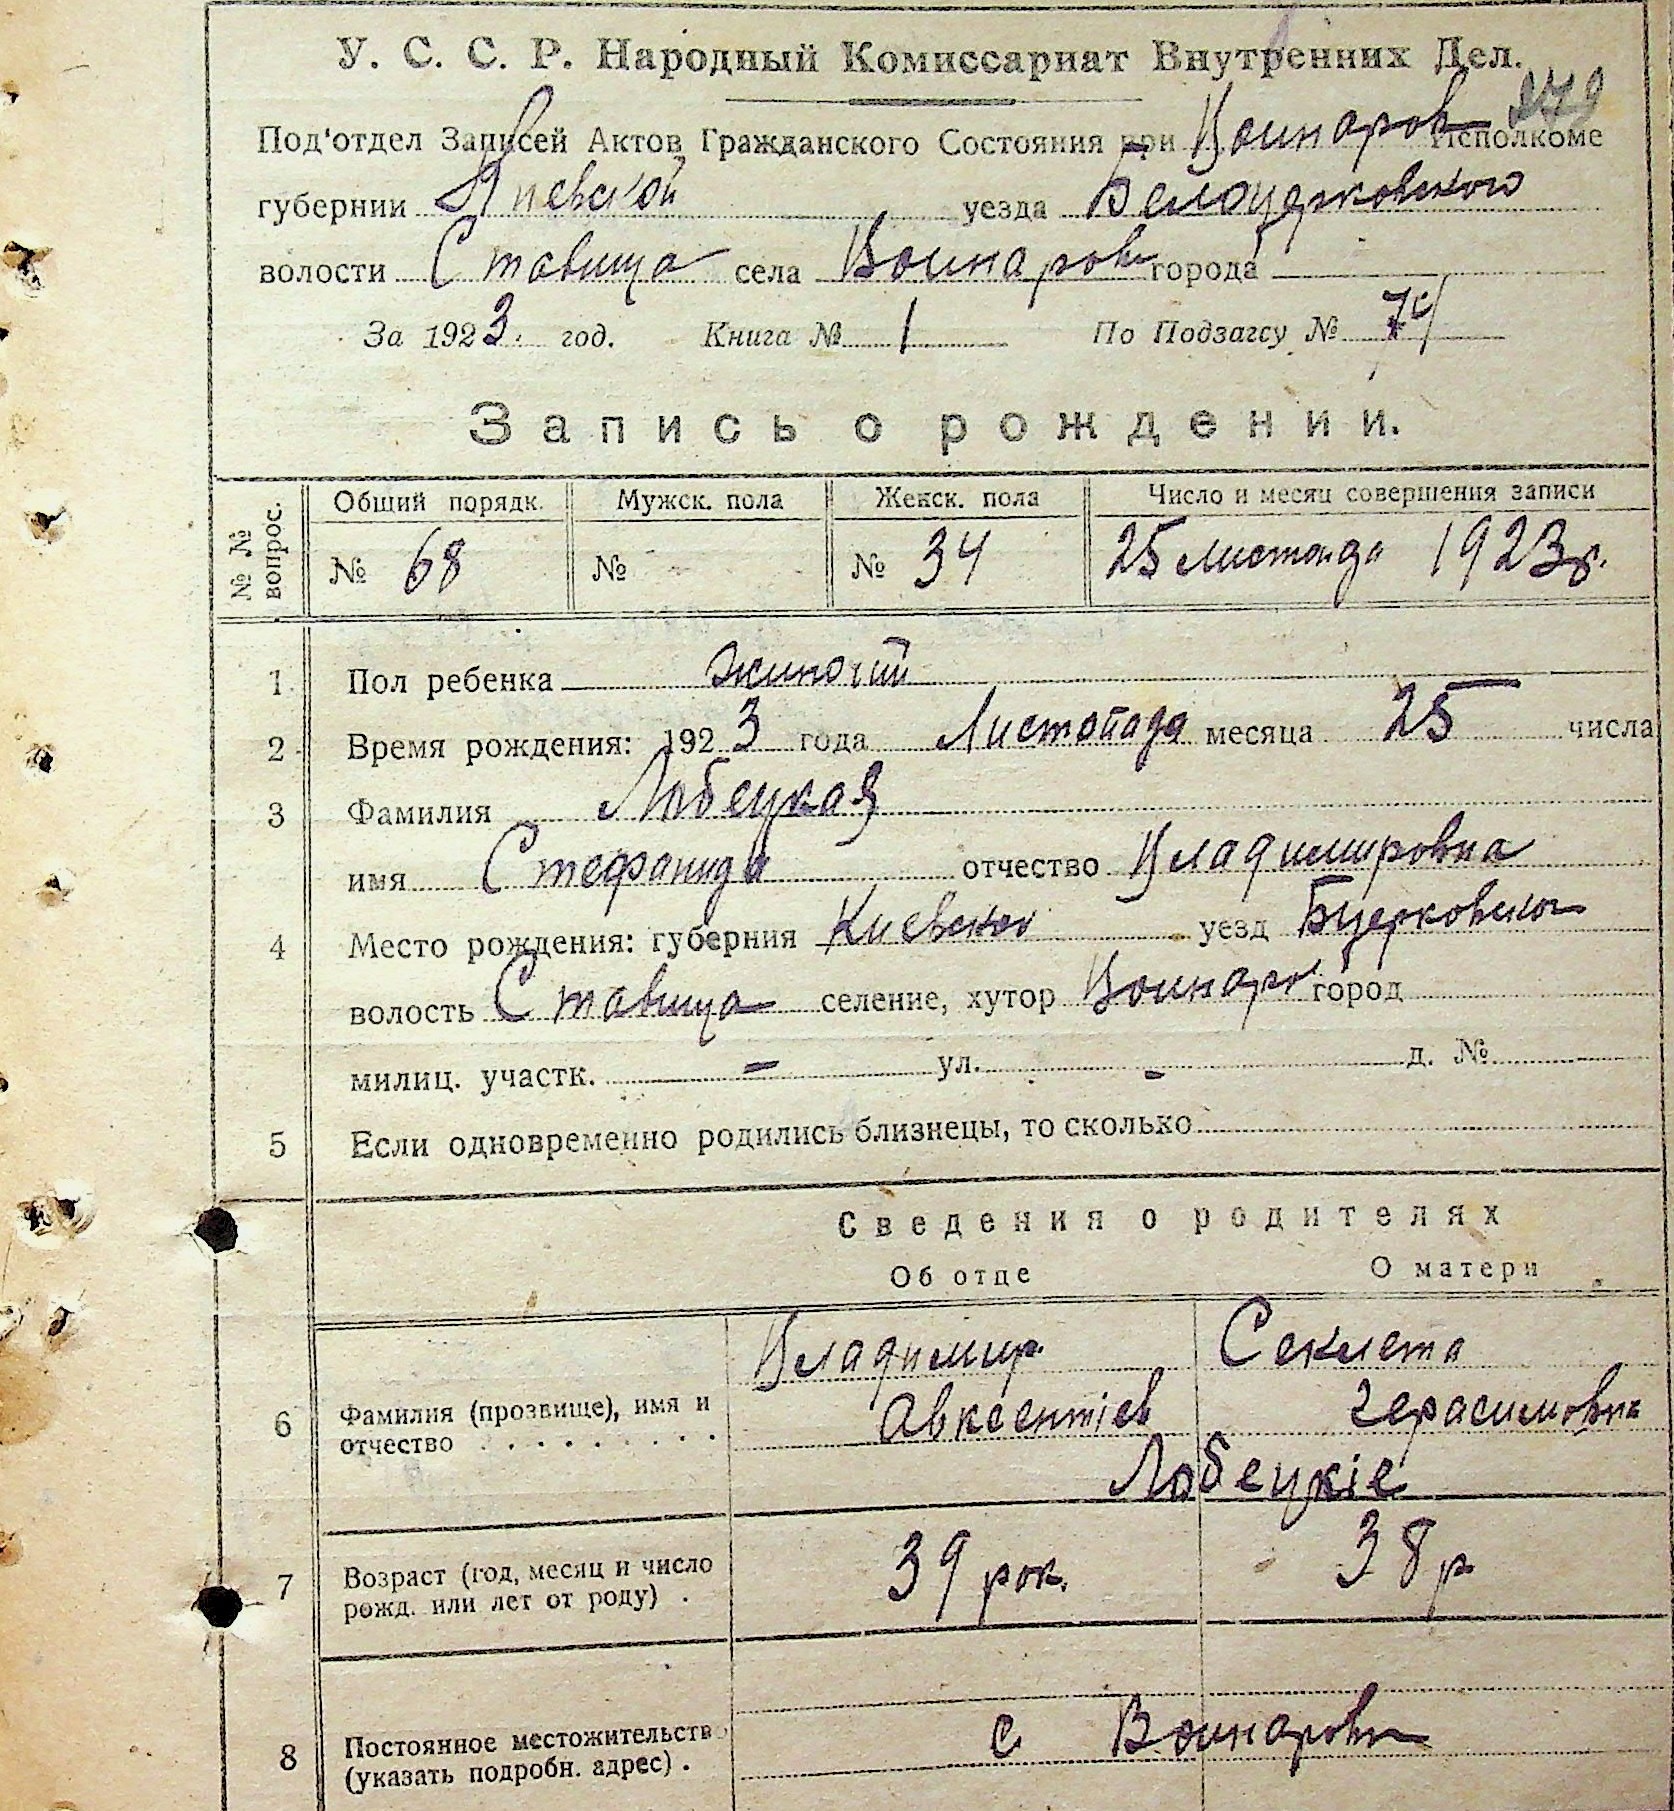 У. С. С. Р. Народный Комиссариат Внутренних Дел.
279
Под'отдел Записей Актов Гражданского Состояния при Воинаров Исполкоме
губернии Киевской уезда Белоцерковского
волости Ставища села Воинаровк города
За 1923. год. Книга № 1 По Подзагсу № 74
Запись о рождении.
№ № вопрос. Общий порядк. Мужск. пола Женск. пола Число и месяц совершения записи
№ 68 № - № 34 25 Листопада 1923 г.
1 Пол ребенка жиночий
2 Время рождения: 1923 года Листопада месяца 25 числа
3 Фамилия Лобецкая
имя Стефанида отчество Владимировна
4 Место рождения: губерния Киевской уезд Бцерковског
волость Ставища селение, хутор Воинаро город
милиц. участк. - ул. - д. №
5 Если одновременно родились близнецы, то сколько
Сведения о родителях
Об отце О матери
Владимир Секлета
6 Фамилия (прозвище), имя и отчество Авксентіев Герасимовна
Лобецкіе
7 Возраст (год, месяц и число рожд. или лет от роду) . 39 рок. 38 р
8 Постоянное местожительств (указать подробн. адрес) . с Воинаровк